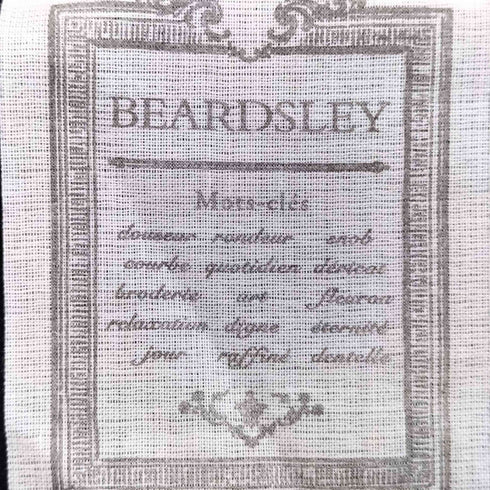 BEARDSLEY
Mots-clés
douceur rondeur snob
courbe quotidien délicat
broderie art fleuron
relaxation digne éternité
jour raffiné dentelle